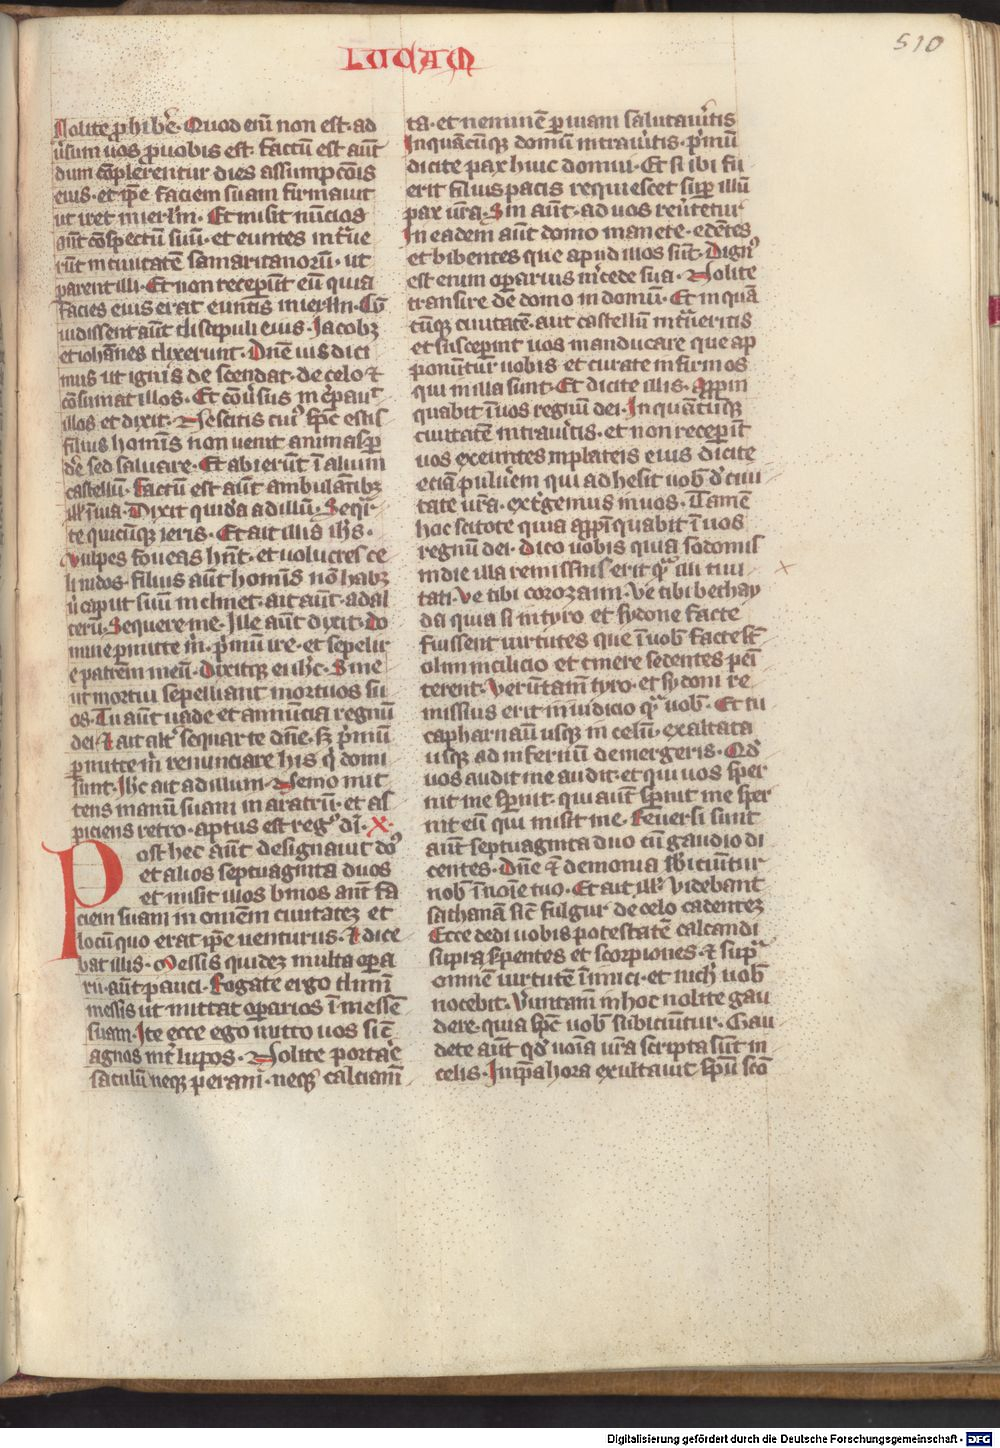 LUCAM
510
Nolite ꝓhibe̅. Quod eni̅ non est ad
u̓sum uos ꝓ uobis est. factu̅ est aut̅
dum co̅plerentur dies assumpco̅is
eius. et ip̅e faciem suam firmauit
ut iret in ierl̅m. Et misit nu̅cios
an̅t co̅spectu̅ suu̅. et euntes intraue
ru̅t in ciuitate̅ samaritanoru̅. ut
parent illi. Et non recepu̅t eu̅ quia
facies eius erat eu̅ntis in ierl̅m. Cu̅
uidissent aut̅ discipuli eius. Jacobꝫ
et ioha̅nes dixerunt. Dn̅e uis dici
mus ut ignis descendat de celo ⁊
co̅sumat illos. Et co̅u̓sus in crepauit
illos et dixit. Nescitis cui᷒ sp̅c estis
filius homi̅s non uenit animas ꝑ
de̅ sed saluare. Et abieru̅t i̅ alium
castellu̅. factu̅ est aut̅ ambulantibꝫ
ill̅ i̅ uia. Dixit quida̅ ad illu̅. Sequar
te quicu̅qꝫ ieris. Et ait illis ih̅s.
Vulpes foueas hn̅t. et uolucres ce
li nidos. filius aut̅ homi̅s no̅ habꝫ
u̓ caput suu̅ in clinet. ait aut̅ ad al
teru̅. Sequere me. Ille aut̅ dixit. Do
mine permitte m̓. p̓mu̅ ire. et sepelir
e patrem meu̅. Dixitqꝫ ei ih̅c. Sine
ut mortui sepeliant mortuos su
os. Tu aut̅ uade et annu̅cia regnu̅
dei. Et ait alt̓ sequar te dn̅e. sꝫ p̓mu̅
ꝑmitte m̓ renunciare his q̓ domi
sunt. Ih̅c ait ad illum. Nemo mit
tens manu̅ suam in aratru̅. et as
piciens retro. aptus est reg᷒ di̅. X.
Post hec aut̅ designauit do᷒
et alios septuaginta duos
et misit illos binos an̅t fa
ciem suam in omne̅m ciuitateꝫ et
locu̅ quo erat ip̅e uenturus. Et dice
bat illis. Messis quideꝫ multa oꝑa
rii aut̅ pauci. Rogate ergo dn̅m
messis ut mittat oꝑarios i̅ messe̅
suam. Ite ecce ego mitto uos sic̅
agnos int̓ lupos. Nolite portare
saculu̅ neqꝫ peram̅. neqꝫ calciam̅
ta. et nemine̅ ꝑ uiam salutaue̓itis
In qua̅cu̅qꝫ domu̅ intraue̓itis. p̓mu̅
dicite pax huic domui. Et si ibi fu
erit filius pacis requiescet suꝑ illu̅
pax ur̅a. Sin aut̅. ad uos reu̓tetur
In eadem aut̅ domo manete. ede̅tes
et bibentes que apud illos su̅t. Dign᷒
est enim oꝑarius m̓cede sua. Nolite
transire de domo in domu̅. Et in qua̅
cu̅qꝫ ciuitate̅ aut castellu̅ int̓ueritis
et susceperint uos manducare que ap
ponuntur uobis et curate infirmos
qui in illa sunt. Et dicite illis. Apꝓpin
quabit i̅ uos regnu̅ dei. In qua̅cu̅qꝫ
ciuitate̅ intraue̓itis. et non recepi̅t
uos exeuntes in plateis eius dicite
ecia̅ puluere̅m qui adhesit uob̅ de̓ ciui
tate ur̅a. ext̓gemus in uos. Tame̅
hoc scitote quia apꝓpi̅quabit i̅ uos
regnu̅ dei. Dico uobis quia sodomis
in die illa remissius erit q̓ illi ciui
tati. Ve tibi corozaim. Ve tibi bethay
da quia si in tyro et sydone facte
fuissent uirtutes que i̅ uob̅ facte st̅
olim in cilicio et cinere sedentes peni
terent. Veru̅tam̅ tyro. et sydoni re
missius erit in iudicio q̓ uob̅. Et tu
capharnau̅ usqꝫ in celu̅. exaltata
usqꝫ ad infernu̅ demergeris. Qd̓
uos audit me audit. et qui uos sper
nit me sꝑnit. qui aut̅ sꝑnit me sper
nit eu̅ qui misit me. Reuersi sunt
aut̅ septuaginta duo cu̅ gaudio di
centes. Dn̅e e̅ demonia sb̅iciu̅tur
nob̅ i̅ no̅ie tuo. Et ait ill̅. Videbam̅
sathana̅ sic̅ fulgur de celo cadenteꝫ
Ecce dedi uobis potestate̅ calcandi
supra sꝑentes et scorpiones. ⁊ sup̓
omne̅ uirtute̅ i̅imici. et nich̓ uob̅
nocebit. Ve̓untam̅ in hoc nolite gau
dere. quia sp̅c uob̅ subiciu̅tur. Gau
dete aut̅ qd̓ no̅ia ur̅a scripta su̅t in
celis. In ip̅a hora exultauit sp̅u sco̅
Digitalisierung gefördert durch die Deutsche Forschungsgemeinschaft - DFG